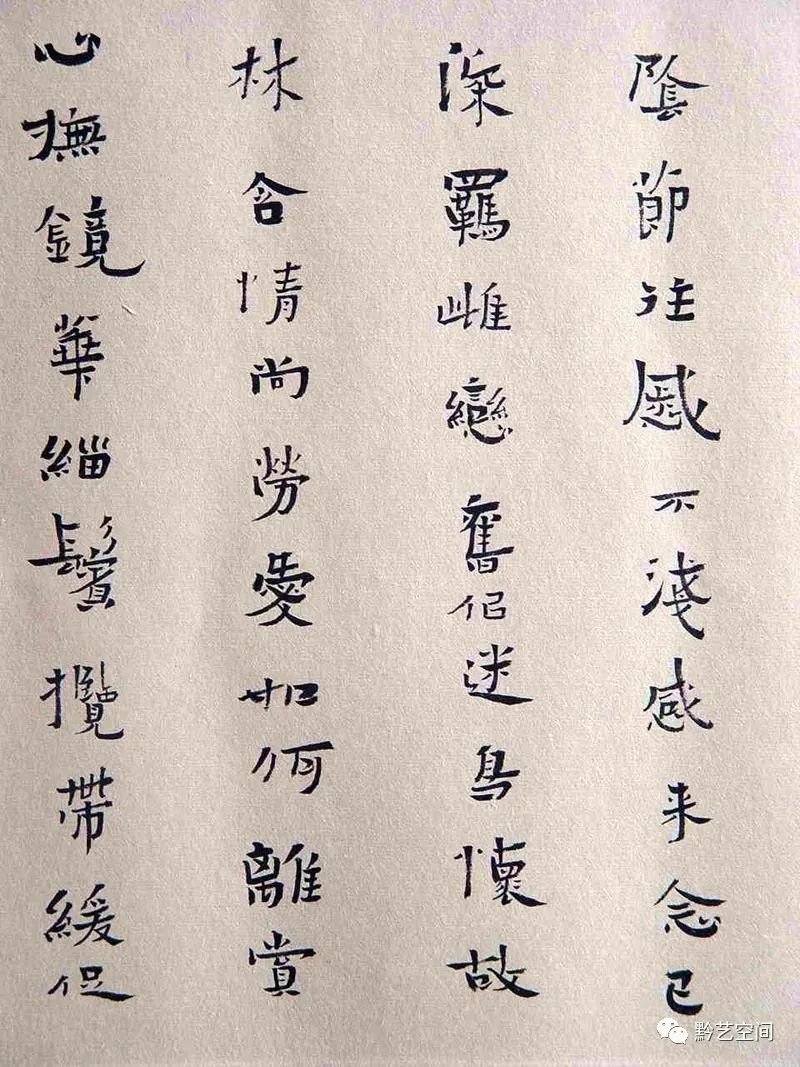 陰節往慼不淺感来念已
深羈雌戀舊侣迷鳥懷故
林含情尚勞愛如何離賞
心撫鏡華緇鬢攬帶緩促
黔艺空间